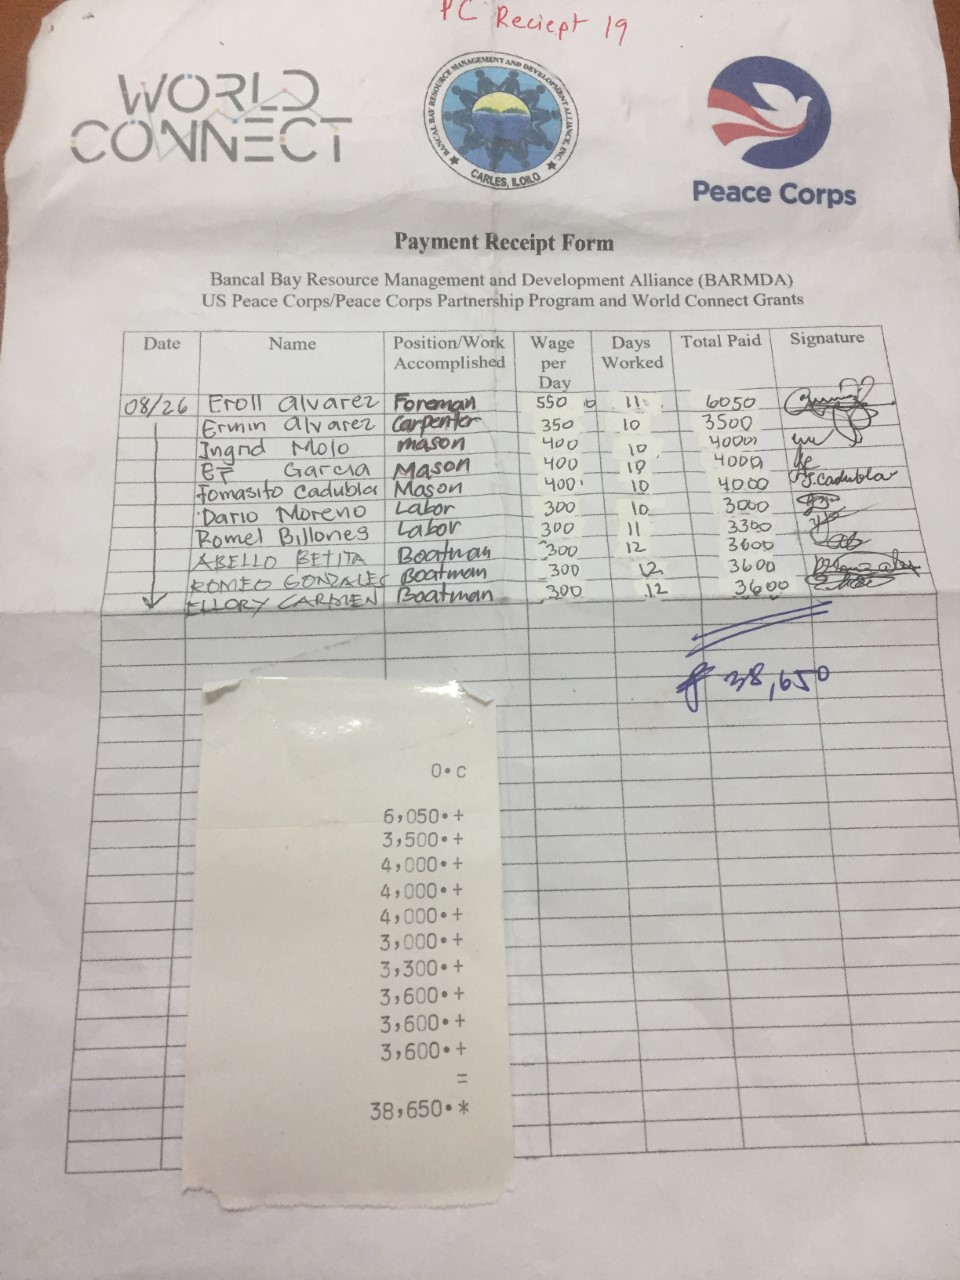 PC Reciept 19
WORLD
CONNECT
BANCAL BAY RESOURCE MANAGEMENT AND DEVELOPMENT ALLIANCE, INC.
CARLES, ILOILO
Peace Corps
Payment Receipt Form
Bancal Bay Resource Management and Development Alliance (BARMDA)
US Peace Corps/Peace Corps Partnership Program and World Connect Grants
Date Name Position/Work Accomplished Wage per Day Days Worked Total Paid Signature
08/26 Eroll alvarez Foreman 550 11 6050
Ermin alvarez Carpenter 350 10 3500
Ingrid Molo mason 400 10 4000
Garcia Mason 400 10 4000
Tomasito Cadubla Mason 400 10 4000 T.Cadubla
Dario Moreno Labor 300 10 3000
Romel Billones Labor 300 11 3300
ABELLO BETITA Boatman 300 12 3600
ROMEO GONZALES Boatman 300 12 3600
ELLORY CARMEN Boatman 300 12 3600
₱ 38,650
0•C
6,050•+
3,500•+
4,000•+
4,000•+
4,000•+
3,000•+
3,300•+
3,600•+
3,600•+
3,600•+
=
38,650•*